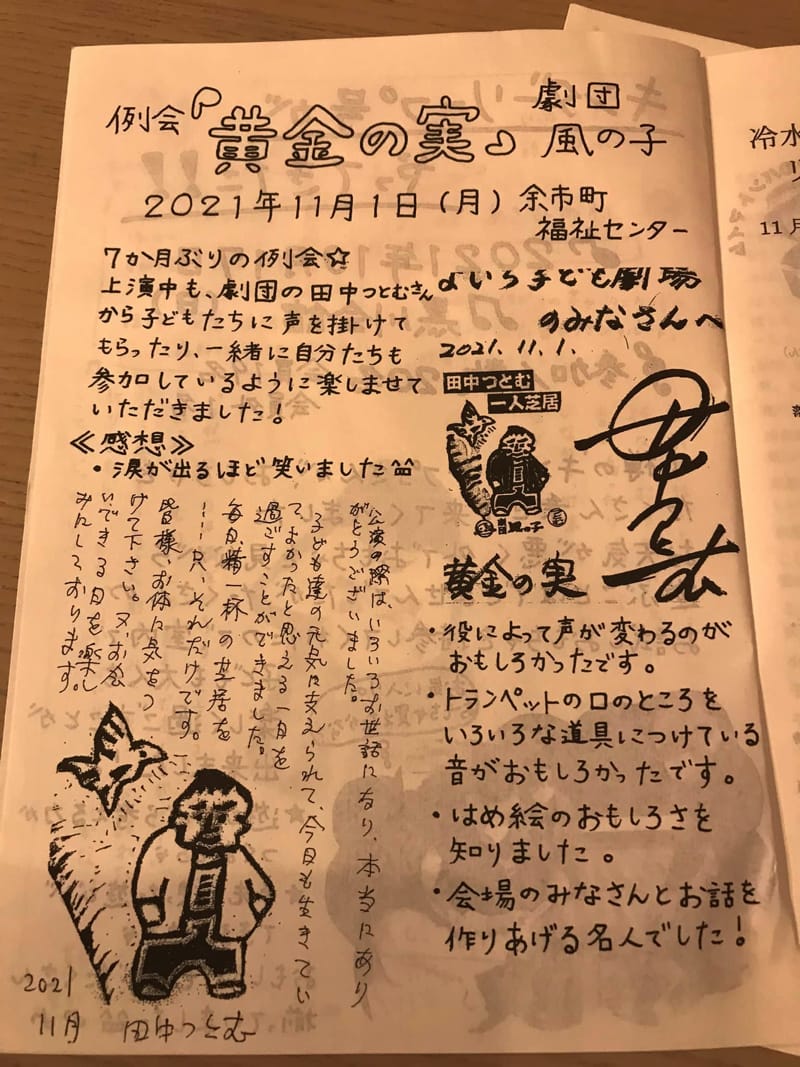 例会『黄金の実』
劇団
風の子
2021年11月1日(月)
余市町
福祉センター
7か月ぶりの例会☆
上演中も、劇団の田中つとむさん
から子どもたちに声を掛けて
もらったり、一緒に自分たちも
参加しているように楽しませて
いただきました!
≪感想≫
・涙が出るほど笑いました
よいち子ども劇場
のみなさんへ
2021.11.1.
田中つとむ
一人芝居
風の子
黄金の実
田中つとむ
・役によって声が変わるのが
おもしろかったです。
・トランペットの口のところを
いろいろな道具につけている
音がおもしろかったです。
・はめ絵のおもしろさを
知りました。
・会場のみなさんとお話を
作りあげる名人でした!
公演の際は、いろいろお世話になり、本当にあり
がとうございました。
子ども達の元気に支えられて、今日も生きてい
て、よかったと思える一日を
過ごすことができました。
毎日、精一杯の芝居を
……只、それだけです。
皆様、お体に気をつ
けて下さい。又お会
いできる日を楽し
みにしております。
2021
11月 田中つとむ
冷水
11月